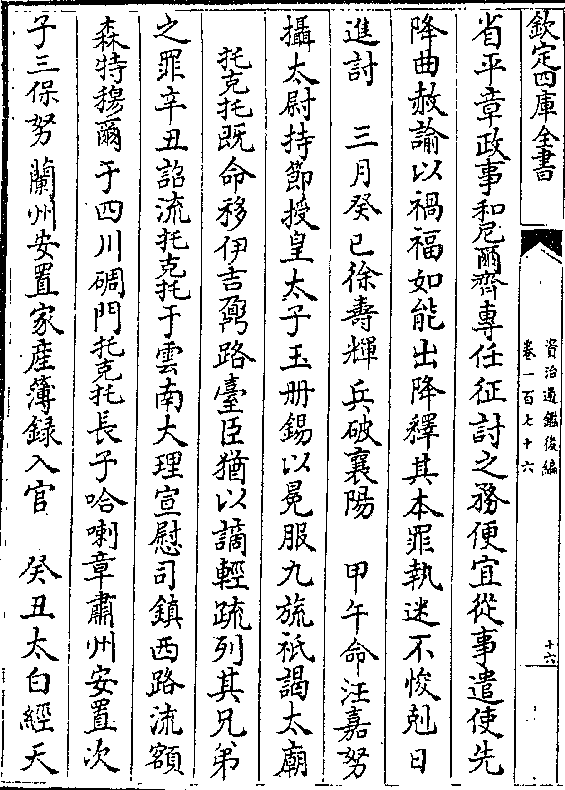 欽定四庫全書
資治通鑑後編
卷一百七十六
十六
省平章政事和尼爾齊專任征討之務便宜從事遣使先
降曲赦諭以禍福如能出降釋其本罪執迷不悛剋日
進討　三月癸巳徐壽輝兵破襄陽　甲午命汪嘉努
攝太尉持節授皇太子玉册錫以冕服九旒祗謁太廟
托克托既命移伊吉鼐路臺臣猶以謫輕疏列其兄弟
之罪辛丑詔流托克托于雲南大理宣慰司鎮西路流額
森特穆爾于四川碉門托克托長子哈喇章肅州安置次
子三保努蘭州安置家產簿録入官　癸丑太白經天